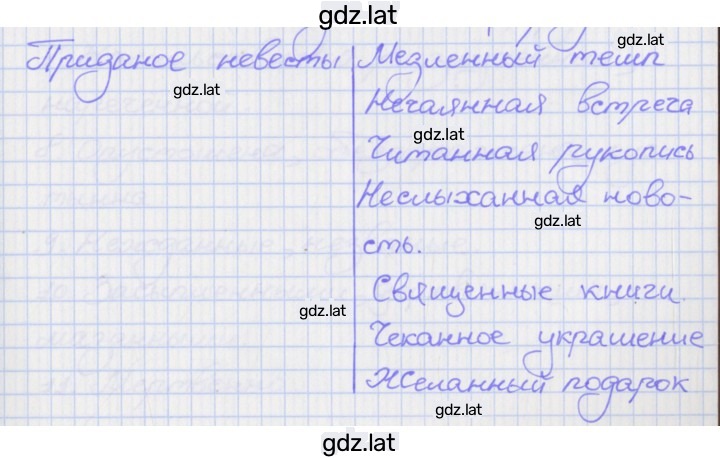 gdz.lat
gdz.lat
Приданое невесты
gdz.lat
Мезленный темп
Нечаянная встреча
gdz.lat
Читанная рукопись
Неслыханная ново-
gdz.lat
сть.
Священные книги.
gdz.lat
Чеканное украшение
Желанный подарок
gdz.lat
gdz.lat